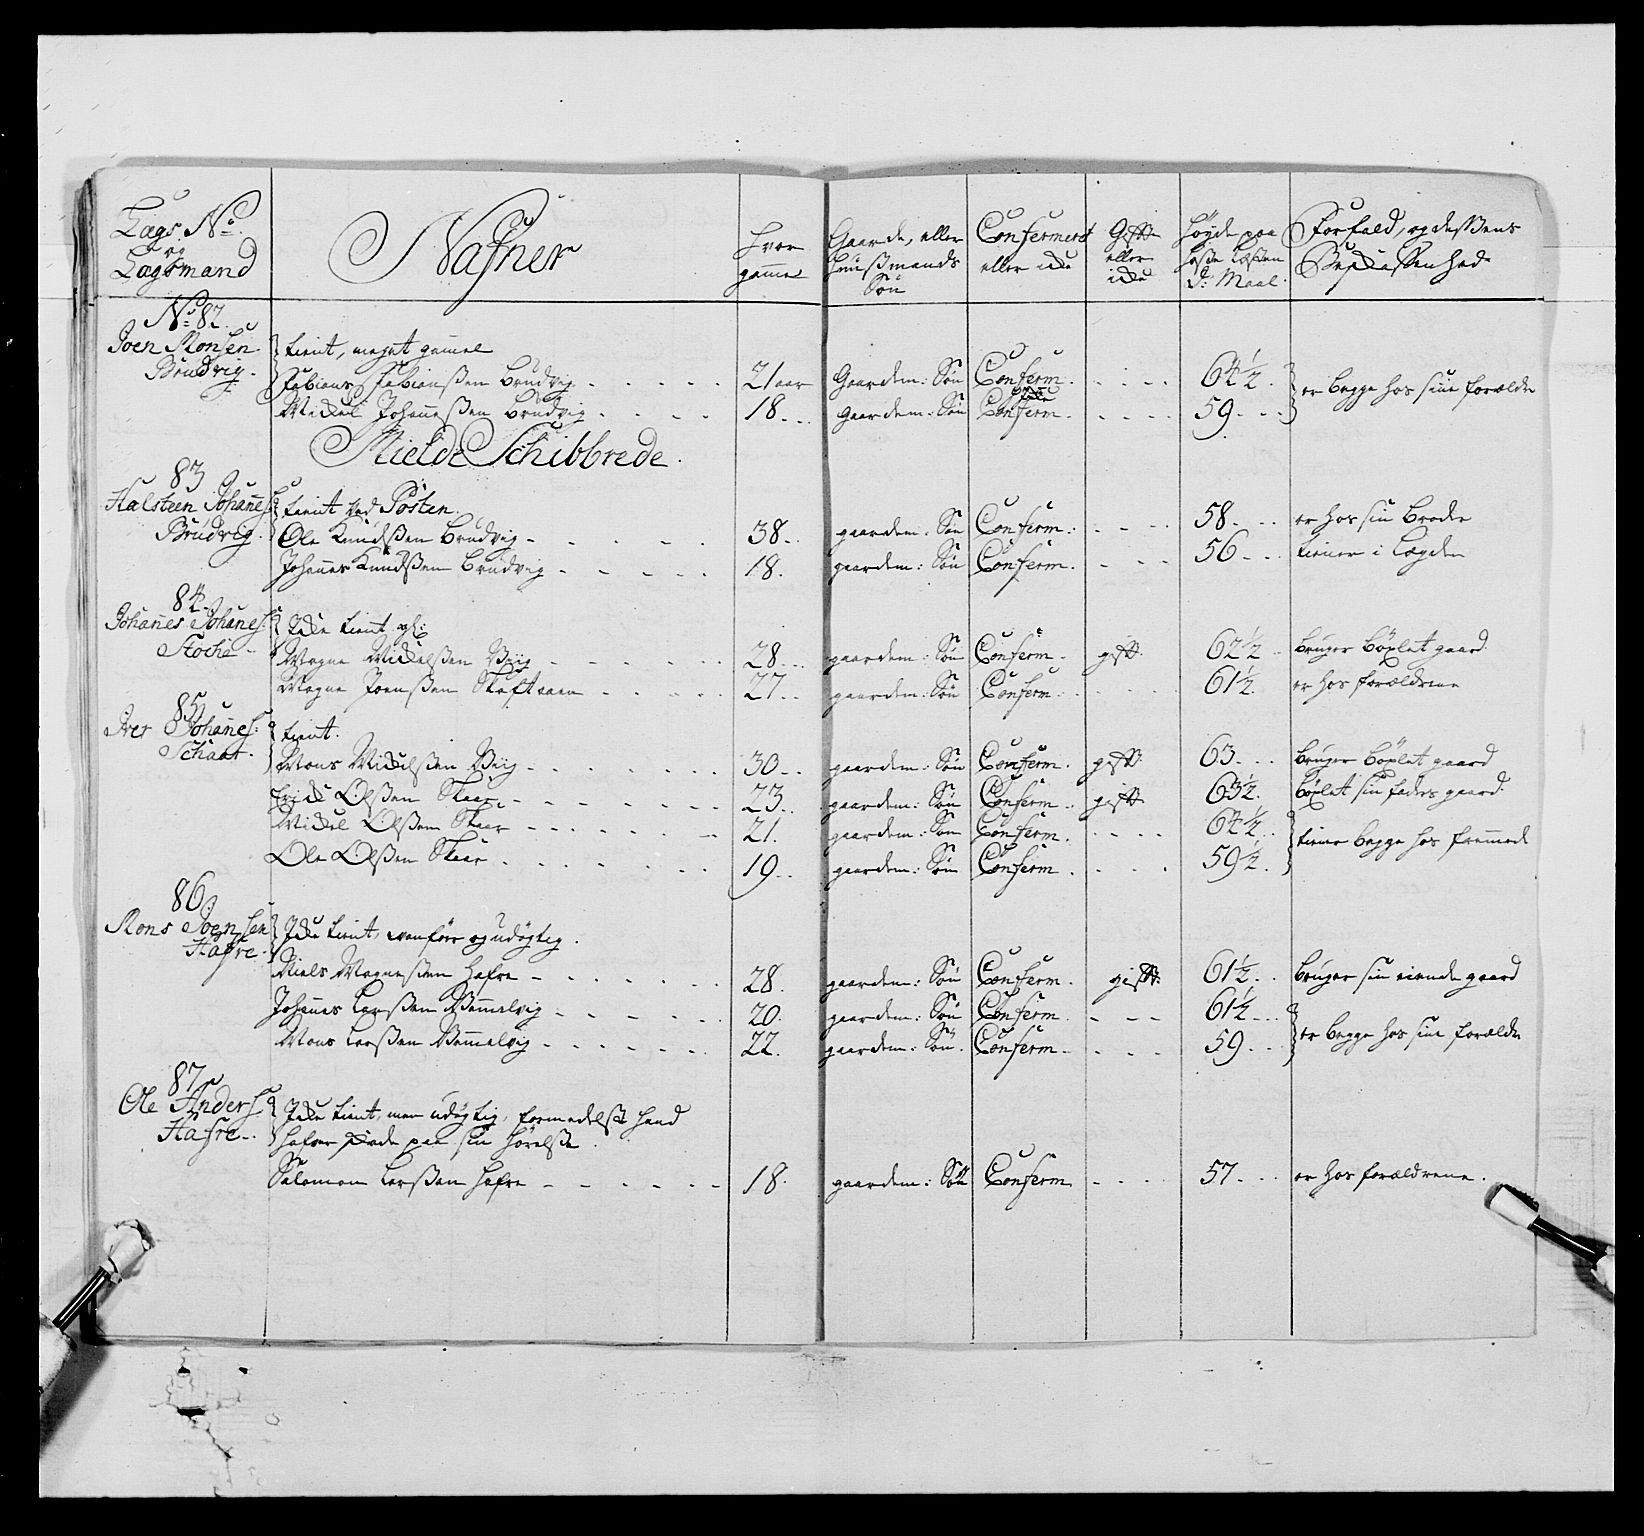 Lægs No: og Lægsmand | Nafner | Hvor gamme | Gaarde, eller Huusmands Søn | Confermert eller icke | Gift eller icke | Høyde paa Hose Læsten D: Maal. | Forfald, og desens Beskaffenhed
No: 82.
Joen Monsen Brudvig. | tient, meget gamel
Fabians Fabiansen Brudvig - - - - - | 21 aar | Gaardem: Søn | Conferm. | - - - | 64½. | er begge hos sine forældre
Mickel Johannesen Brudvig - - - - | 18. - - | Gaardem: Søn | icke Conferm. | - - - - | 59. - -
Mielde Schibbrede.
83
Halsteen Johannes: Brudvig. | tient ved Posten.
Ole Knudsen Brudvig - - - - - | 38. - | gaardem: Søn | Conferm. | - - - | 58. - - | er hos sin Broder
Johannes Knudsen Brudvig - - - - - | 18. | gaardem: Søn | Conferm. | - - - | 56 - - | tiener i Lægden
84.
Johanes Johanes: Stoche | Icke tient,
Magne Mickelsen Viig - - - - - | 28. - - | gaardem: Søn | Conferm - | gift | 62½ - | bruger böxlet gaard.
Magne Joensen Skaftraen - - - - - | 27. - | gaardem: Søn | Conferm. | - - - - | 61½. | er hos forældrene
85
Iver Johanes: Schaar. | tient.
Mons Mickelsen Viig - - - - - - - | 30. - | gaardem: Søn | Conferm. | gift | 63. - - | bruger böxlet gaard
Erick Olsen Skaar, - - - - - - - | 23. | gaardem: Søn | Conferm. | gift | 63½. | böxlet sin faders gaard.
Mickel Olsen Skaar - - - - - - | 21. | gaardem: Søn | Conferm. | - - - - | 64½. | tiener begge hos fremmede
Ole Olsen Skaar - - - - - - - | 19. - | gaardem: Søn | Conferm. | - - - | 59½.
86.
Mons Joensen Hafre. | Icke tient, vanför og udögtig.
Niels Magnesen Hafre - - - - - - | 28. | gaardem: Søn | Conferm. | gift. | 61½. - | bruger sin eiende gaard
Johannes Larsen Vemmelvig - - - - - | 20. | gaardem: Søn | Conferm. | - - - | 61½ - - | er begge hos sine forældre
Mons Larsen Vemmelvig - - - - - - | 22. | gaardem: Søn. | Conferm - | - - - | 59 - - -
87
Ole Anders: Hafre - . | Icke tient, men udögtig, formedelst hand
hafver skade paa sin hörelse.
Salomon Larsen Hafre - - - - - - | 18. | gaardem: Søn | Conferm | - - - - | 57. - - | er hos forældrene.